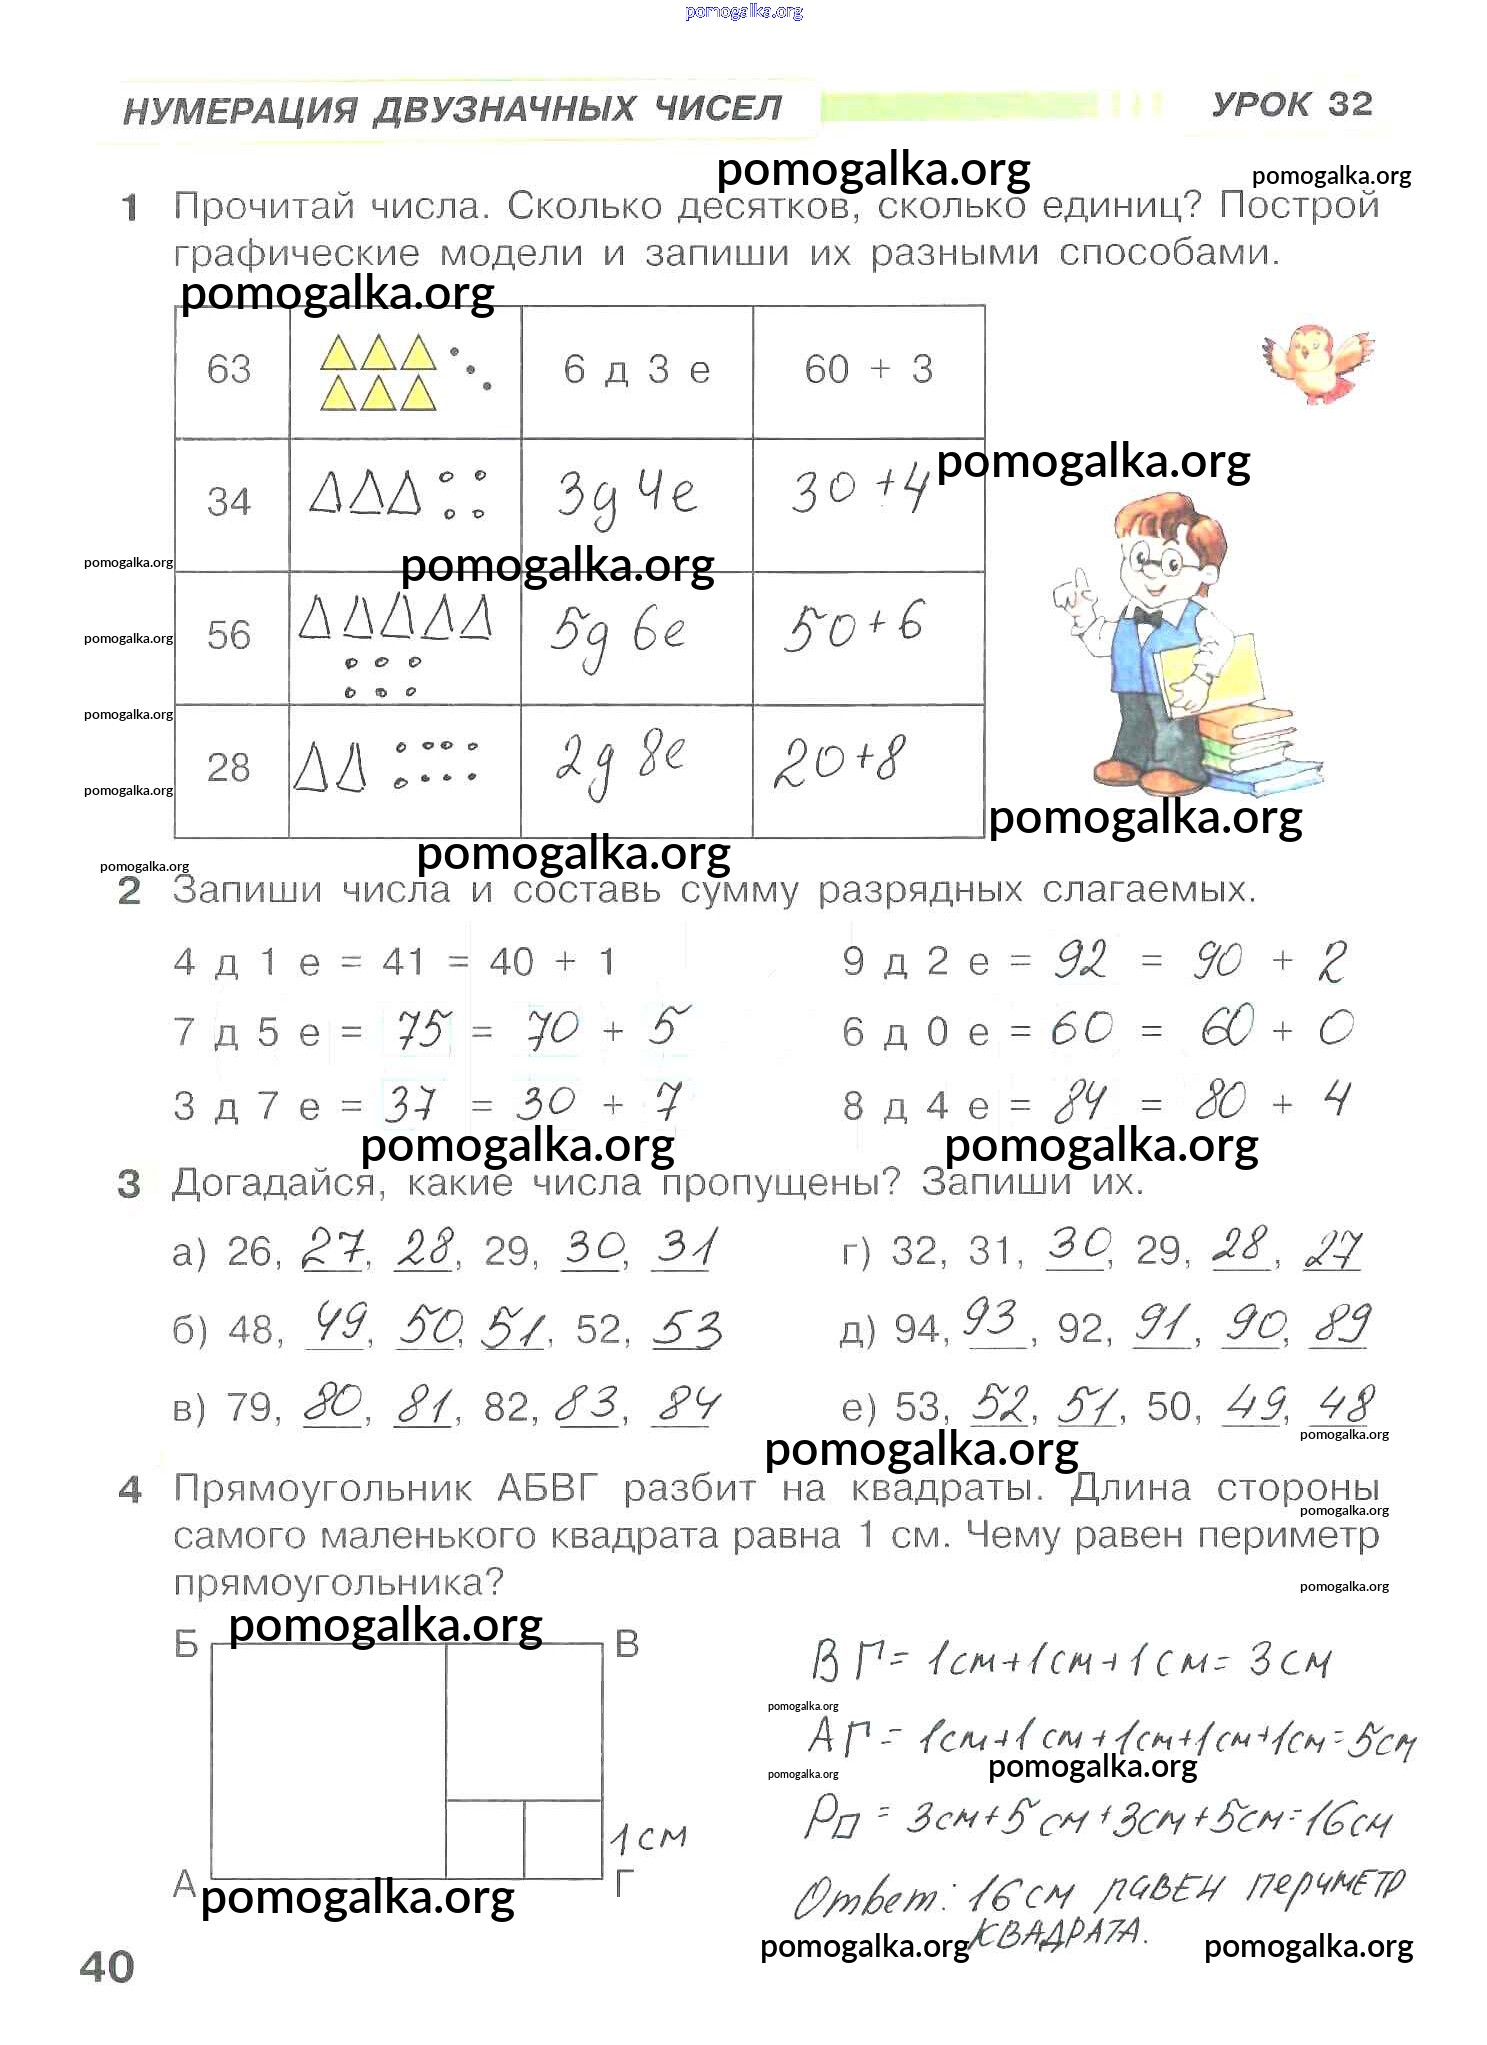 pomogalka.org
НУМЕРАЦИЯ ДВУЗНАЧНЫХ ЧИСЕЛ УРОК 32
pomogalka.org pomogalka.org
1 Прочитай числа. Сколько десятков, сколько единиц? Построй
графические модели и запиши их разными способами.
pomogalka.org
63 6 д 3 е 60 + 3
pomogalka.org
34 3д 4е 30 + 4
pomogalka.org pomogalka.org
56 5д 6е 50 + 6
pomogalka.org
pomogalka.org
28 2д 8е 20 + 8
pomogalka.org
pomogalka.org
pomogalka.org
pomogalka.org
2 Запиши числа и составь сумму разрядных слагаемых.
4 д 1 е = 41 = 40 + 1 9 д 2 е = 92 = 90 + 2
7 д 5 е = 75 = 70 + 5 6 д 0 е = 60 = 60 + 0
3 д 7 е = 37 = 30 + 7 8 д 4 е = 84 = 80 + 4
pomogalka.org pomogalka.org
3 Догадайся, какие числа пропущены? Запиши их.
а) 26, 27, 28, 29, 30, 31 г) 32, 31, 30, 29, 28, 27
б) 48, 49, 50, 51, 52, 53 д) 94, 93, 92, 91, 90, 89
в) 79, 80, 81, 82, 83, 84 е) 53, 52, 51, 50, 49, 48
pomogalka.org pomogalka.org
4 Прямоугольник АБВГ разбит на квадраты. Длина стороны
pomogalka.org
самого маленького квадрата равна 1 см. Чему равен периметр
прямоугольника?
pomogalka.org
pomogalka.org
Б В ВГ = 1см + 1см + 1см = 3см
pomogalka.org
АГ = 1см + 1см + 1см + 1см + 1см = 5см
pomogalka.org pomogalka.org
Р▱ = 3см + 5см + 3см + 5см = 16см
1см
А Г Ответ: 16см равен периметр
pomogalka.org
квадрата.
pomogalka.org pomogalka.org
40